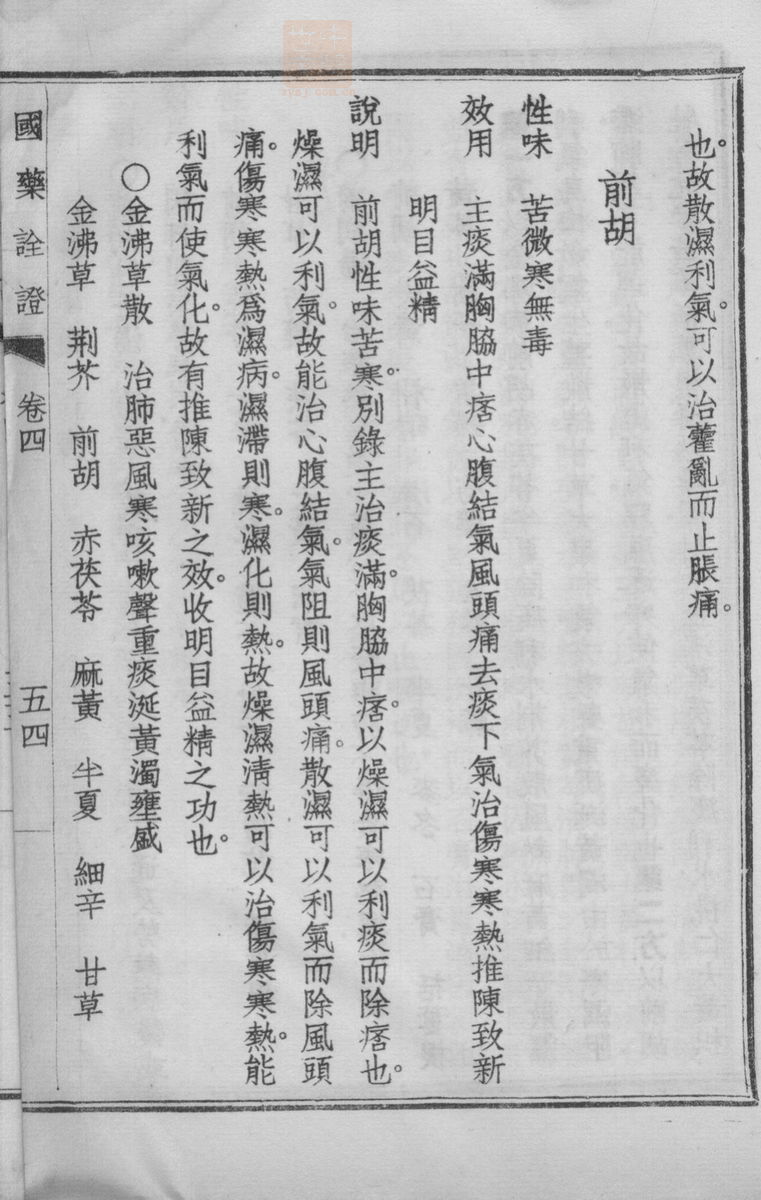 也。故散濕利氣。可以治藿亂而止脹痛。
前胡
性味　苦微寒無毒
效用　主痰滿胸脇中痞心腹結氣風頭痛去痰下氣治傷寒寒熱推陳致新
明目益精
說明　前胡性味苦寒。別錄主治痰滿。胸脇中痞。以燥濕可以利痰而除痞也。
燥濕可以利氣。故能治心腹結氣。氣阻則風頭痛。散濕可以利氣而除風頭
痛。傷寒寒熱爲濕病。濕滯則寒。濕化則熱。故燥濕淸熱可以治傷寒寒熱。能
利氣而使氣化。故有推陳致新之效。收明目益精之功也。
〇金沸草散　治肺惡風寒咳嗽聲重痰涎黃濁壅盛
金沸草　荆芥　前胡　赤茯苓　麻黃　半夏　細辛　甘草
國藥詮證　卷四　五四